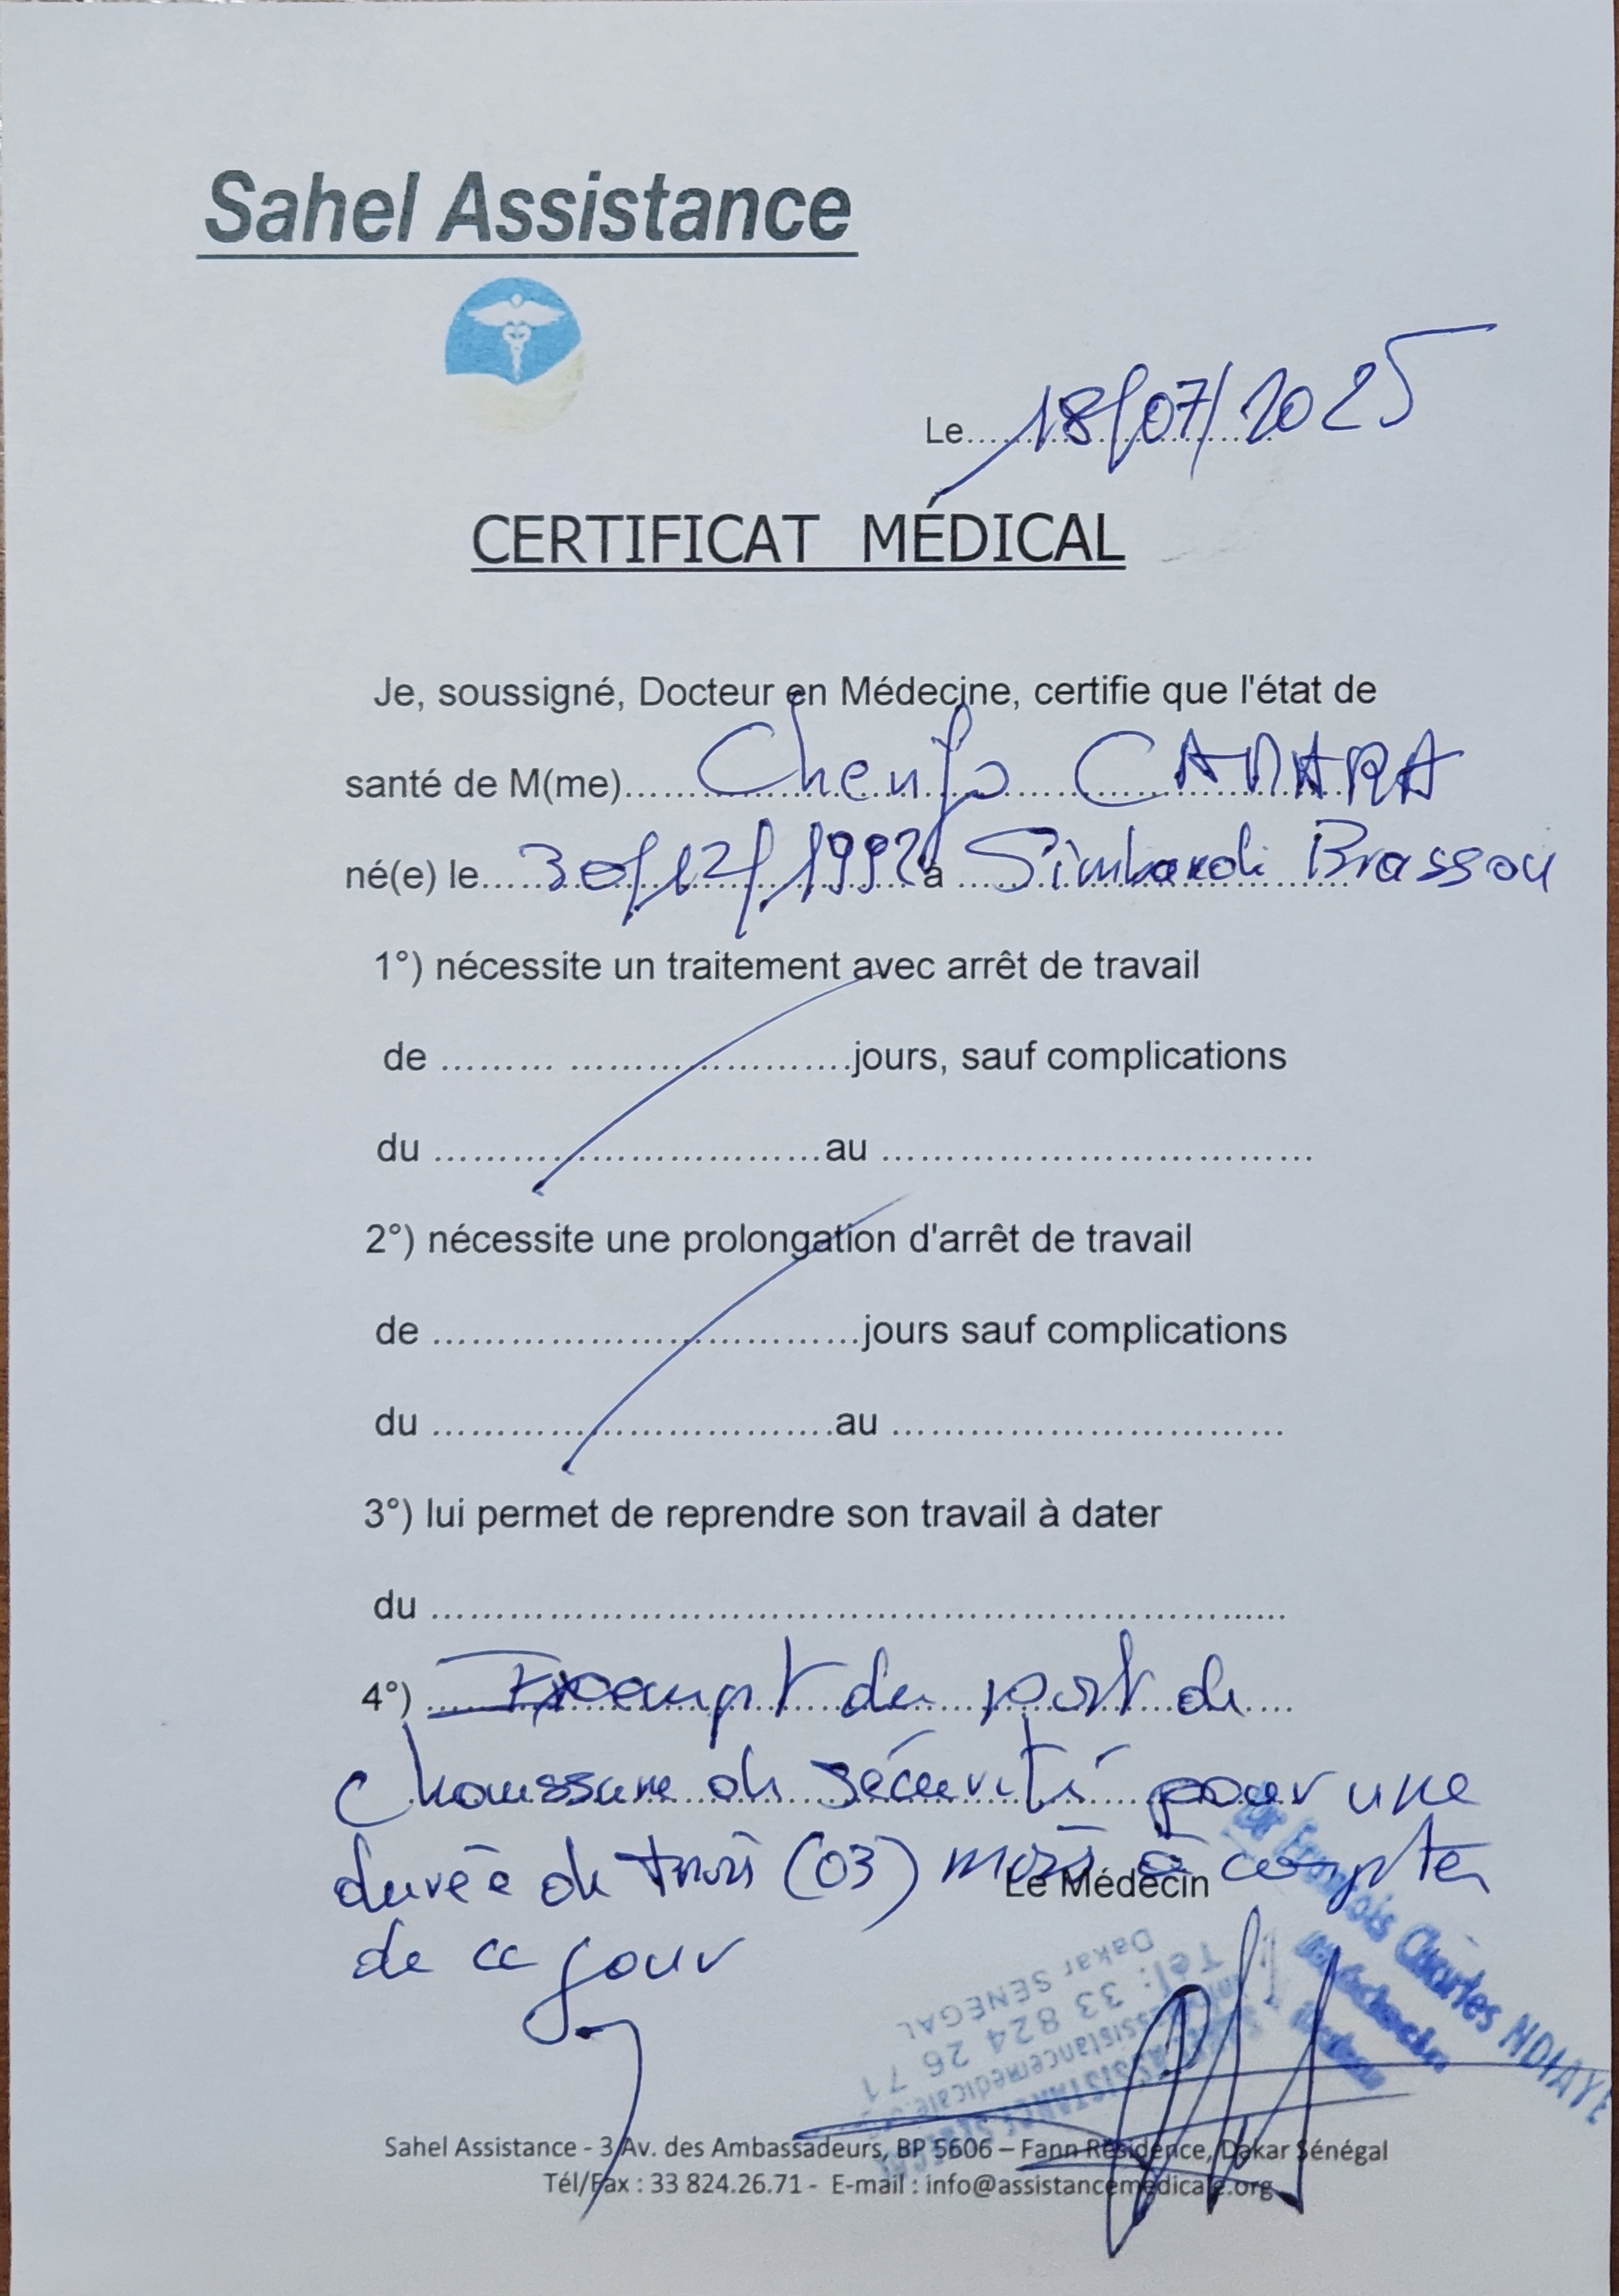 Sahel Assistance
Le......18/07/2025
CERTIFICAT MÉDICAL
Je, soussigné, Docteur en Médecine, certifie que l'état de
santé de M(me)...... CAMARA
né(e) le.....30/12/1992 à ..... Simbandi Brassou
1°) nécessite un traitement avec arrêt de travail
de ......... ........................jours, sauf complications
du ..................................au .....................................
2°) nécessite une prolongation d'arrêt de travail
de .....................................jours sauf complications
du ...................................au ..................................
3°) lui permet de reprendre son travail à dater
du ..........................................................................
4°) ..... Exempt du port de ....
chaussure de sécurité pour une
durée de trois (03) mois à compter
Le Médecin
de ce jour
Dr François Charles NDIAYE
Tél: 33 824 26 71
Dakar SENEGAL
Sahel Assistance - 3 Av. des Ambassadeurs, BP 5606 – Fann Résidence, Dakar Sénégal
Tél/Fax : 33 824.26.71 - E-mail : info@assistancemedicale.org